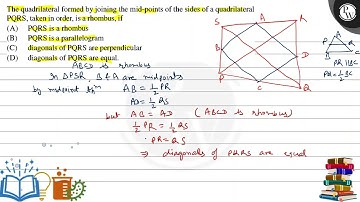 The quadrilateral formed by joining the mid-points of the sides of a quadrilateral
PQRS, taken in order, is a rhombus, if
(A) PQRS is a rhombus
(B) PQRS is a parallelogram
(C) diagonals of PQRS are perpendicular
(D) diagonals of PQRS are equal.
ABCD is rhombus
In ΔPSR, B & A are midpoints
by midpoint thm AB = 1/2 PR
AD = 1/2 QS
but AB = AD (ABCD is rhombus)
1/2 PR = 1/2 QS
PR = QS
⇒ diagonals of PQRS are equal
S A R
B D
P C Q
A
P R
B C
PR || BC
PR = 1/2 BC